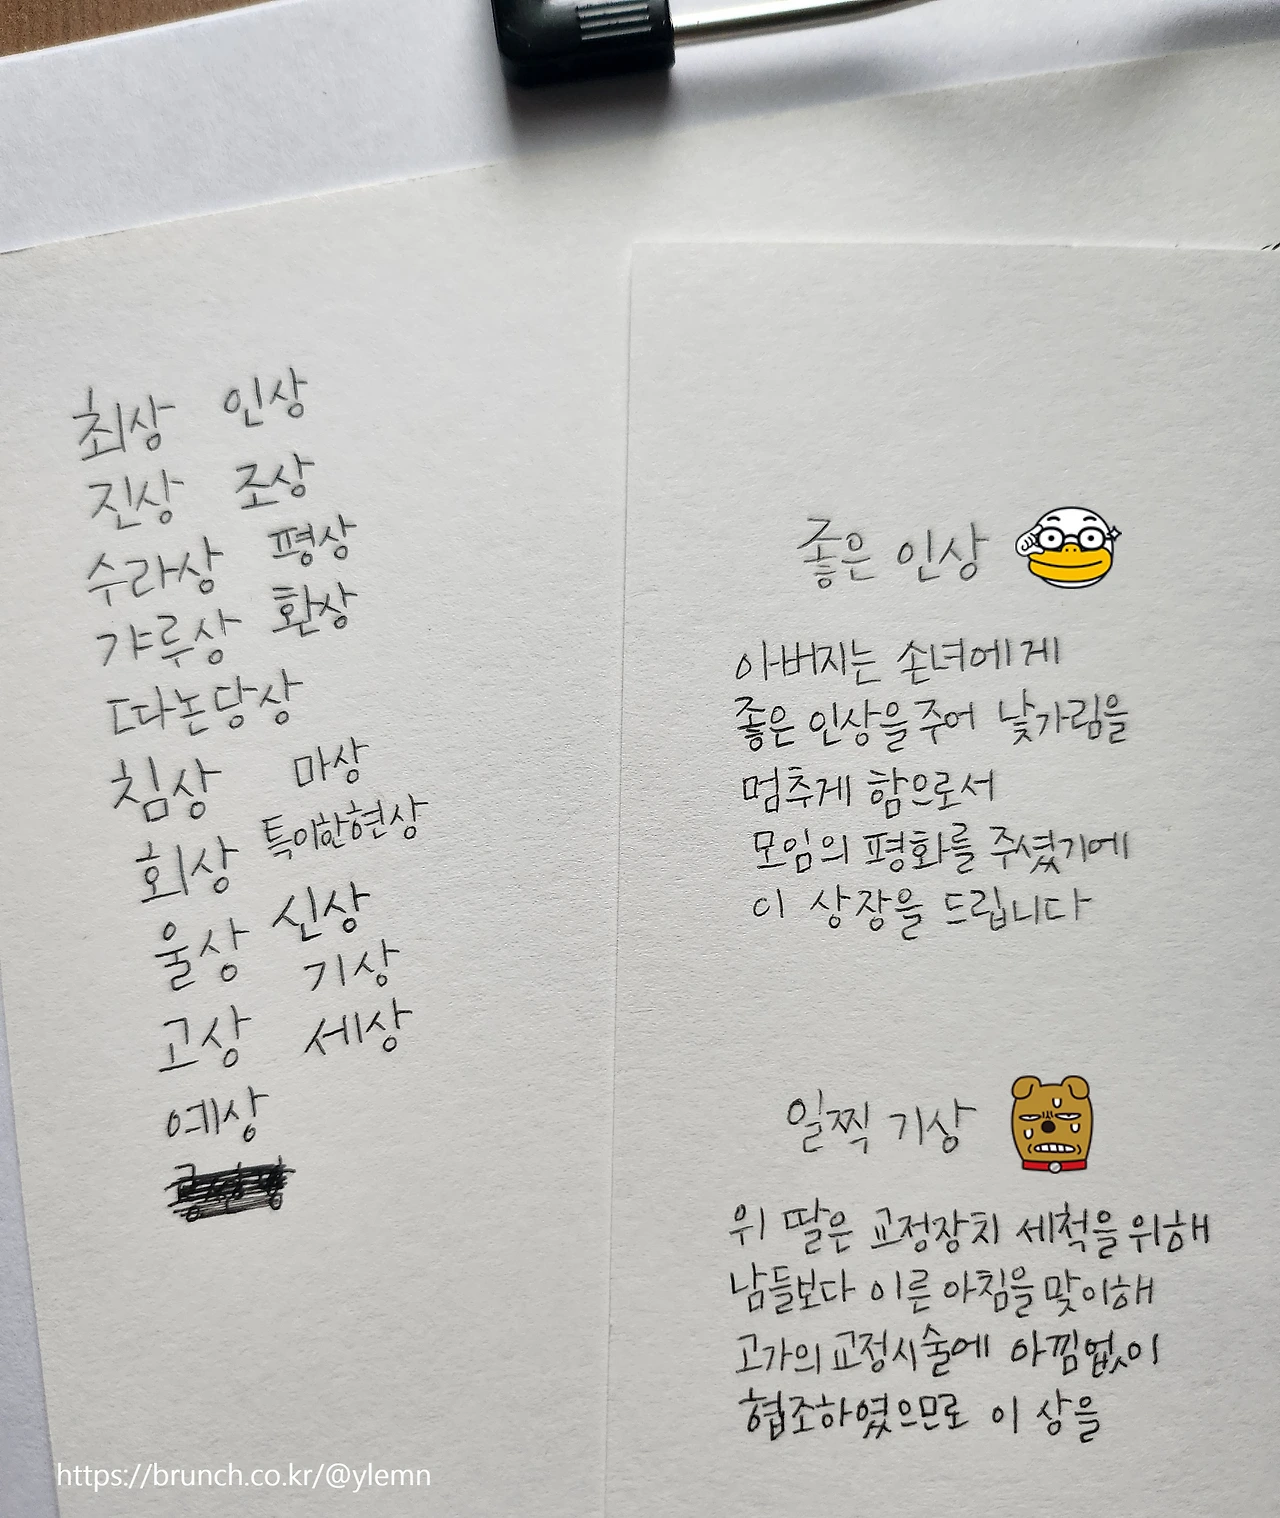 최상 인상
진상 조상
수라상 평상
갸루상 환상
따논당상
침상 마상
회상 특이한현상
울상 신상
고상 기상
예상 세상
좋은 인상
아버지는 손녀에게
좋은 인상을 주어 낯가림을
멈추게 함으로서
모임의 평화를 주셨기에
이 상장을 드립니다
일찍 기상
위 딸은 교정장치 세척을 위해
남들보다 이른 아침을 맞이해
고가의 교정시술에 아낌없이
협조하였으므로 이 상을
https://brunch.co.kr/@ylemn